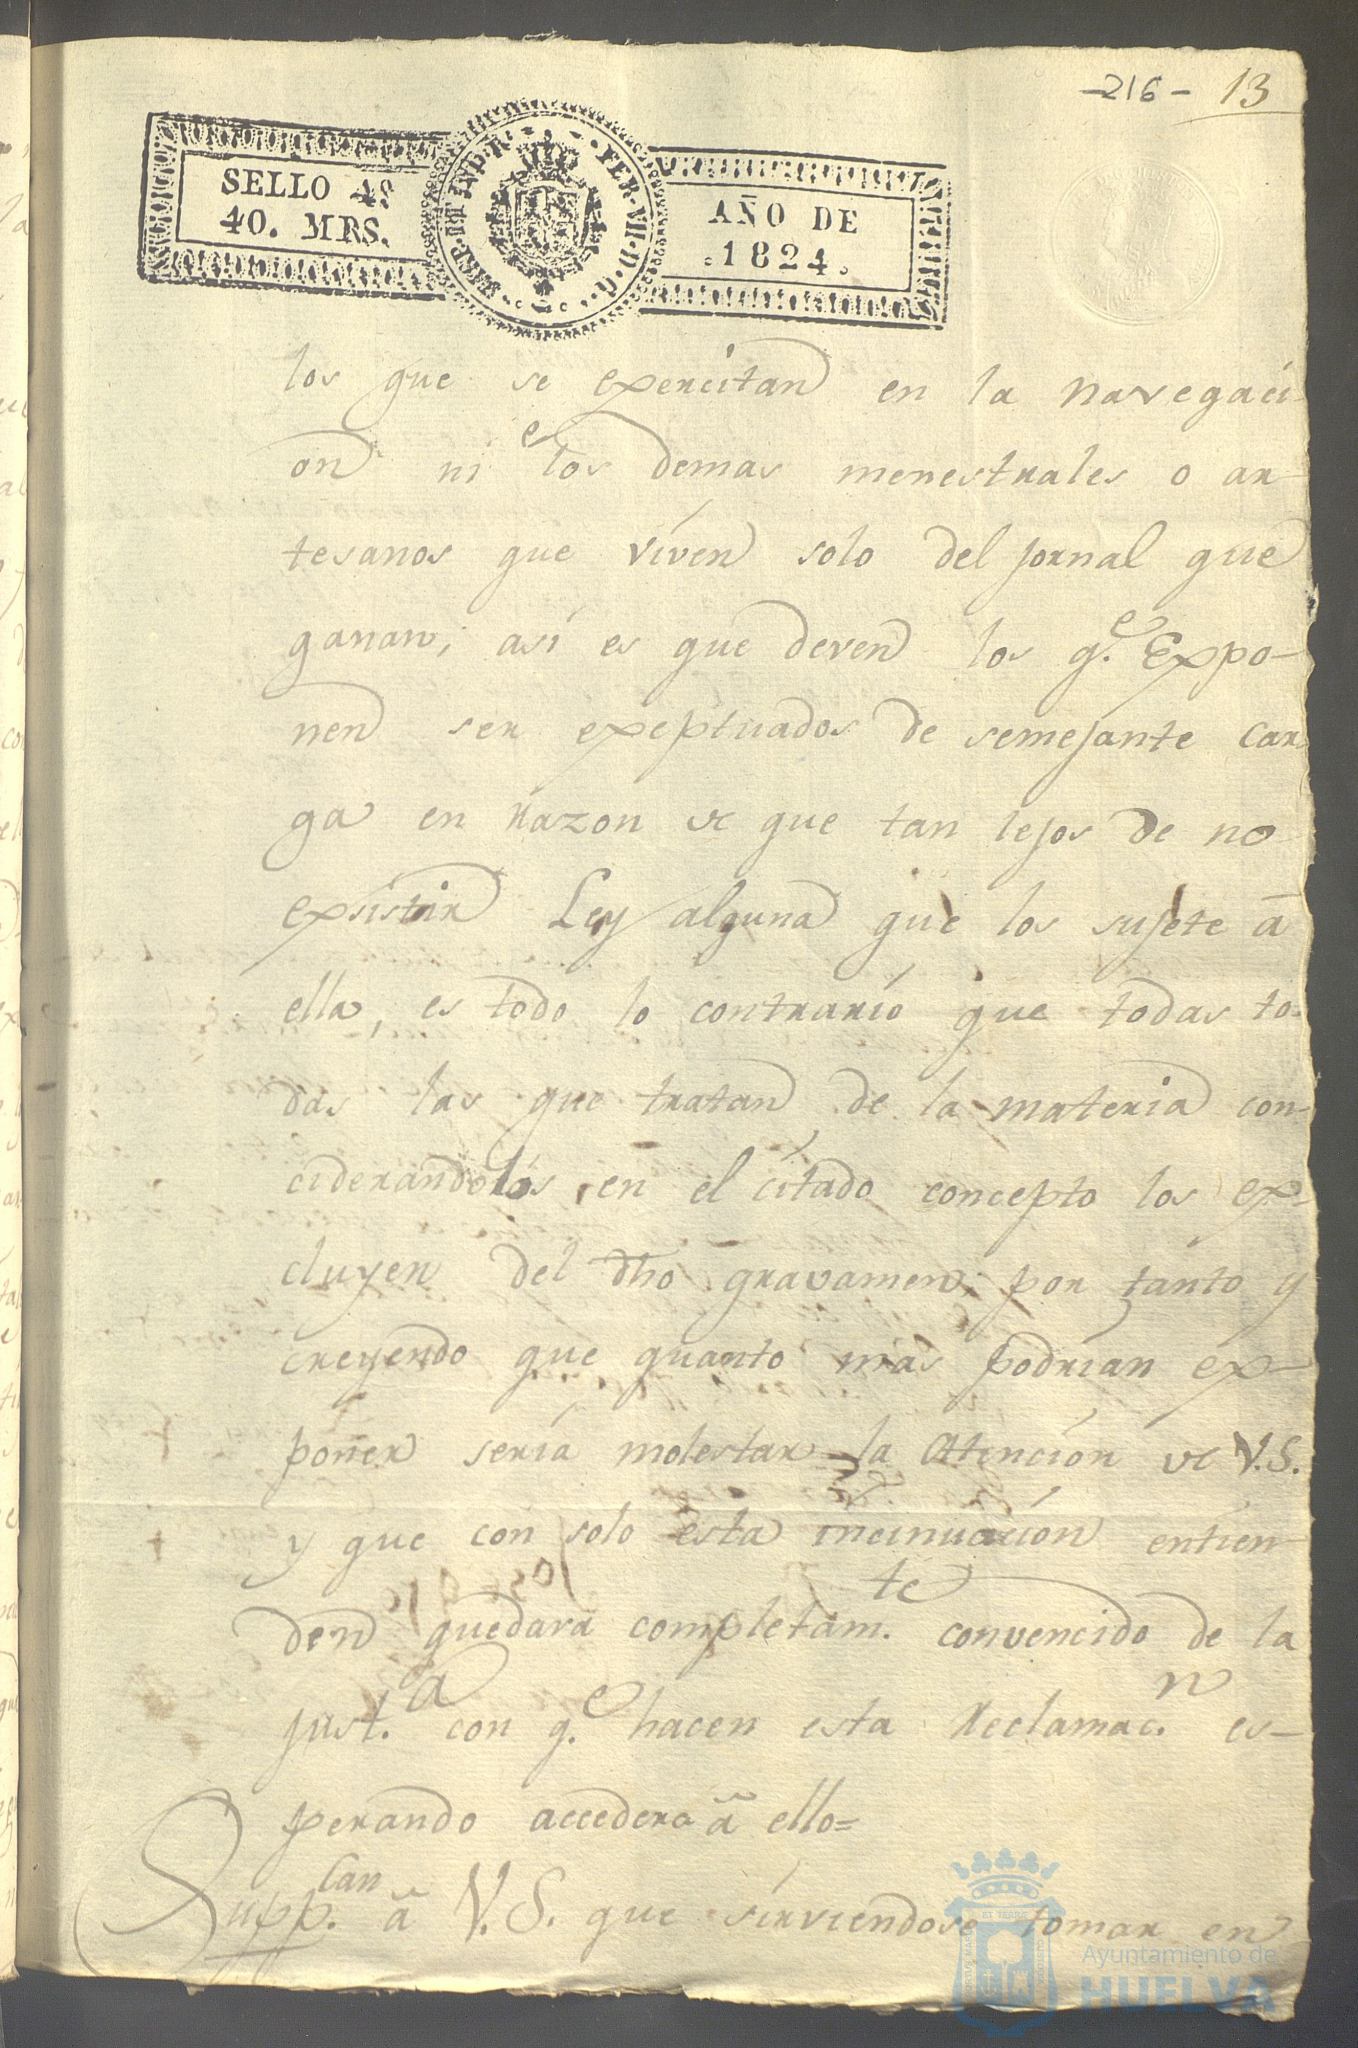 -216- 13
SELLO 4º
40. MRS.
HISP. ET IND. R. FER. VII. D. G.
AÑO DE
1824.
los que se exercitan en la navegaci-
on ni los demas menestrales o ar-
tesanos que viven solo del jornal que
ganan; asi es que deven los q.e Expo-
nen ser exeptuados de semejante car-
ga en razon de que tan lejos de no
exsistir Ley alguna que los sujete á
ella, es todo lo contrario que todas to-
das las que tratan de la materia con-
ciderandolos en el citado concepto los ex-
cluyen del dho gravamen; por tanto y
creyendo que quanto mas podrian ex-
poner seria molestar la Atencion de V.S.
y que con solo esta incinuacion entien-
den quedara completam.te convencido de la
just.a con q.e hacen esta Reclamac.n es-
perando accedera á ello=
Supp.can á V.S. que sirviendose tomar en
Ayuntamiento de
HUELVA